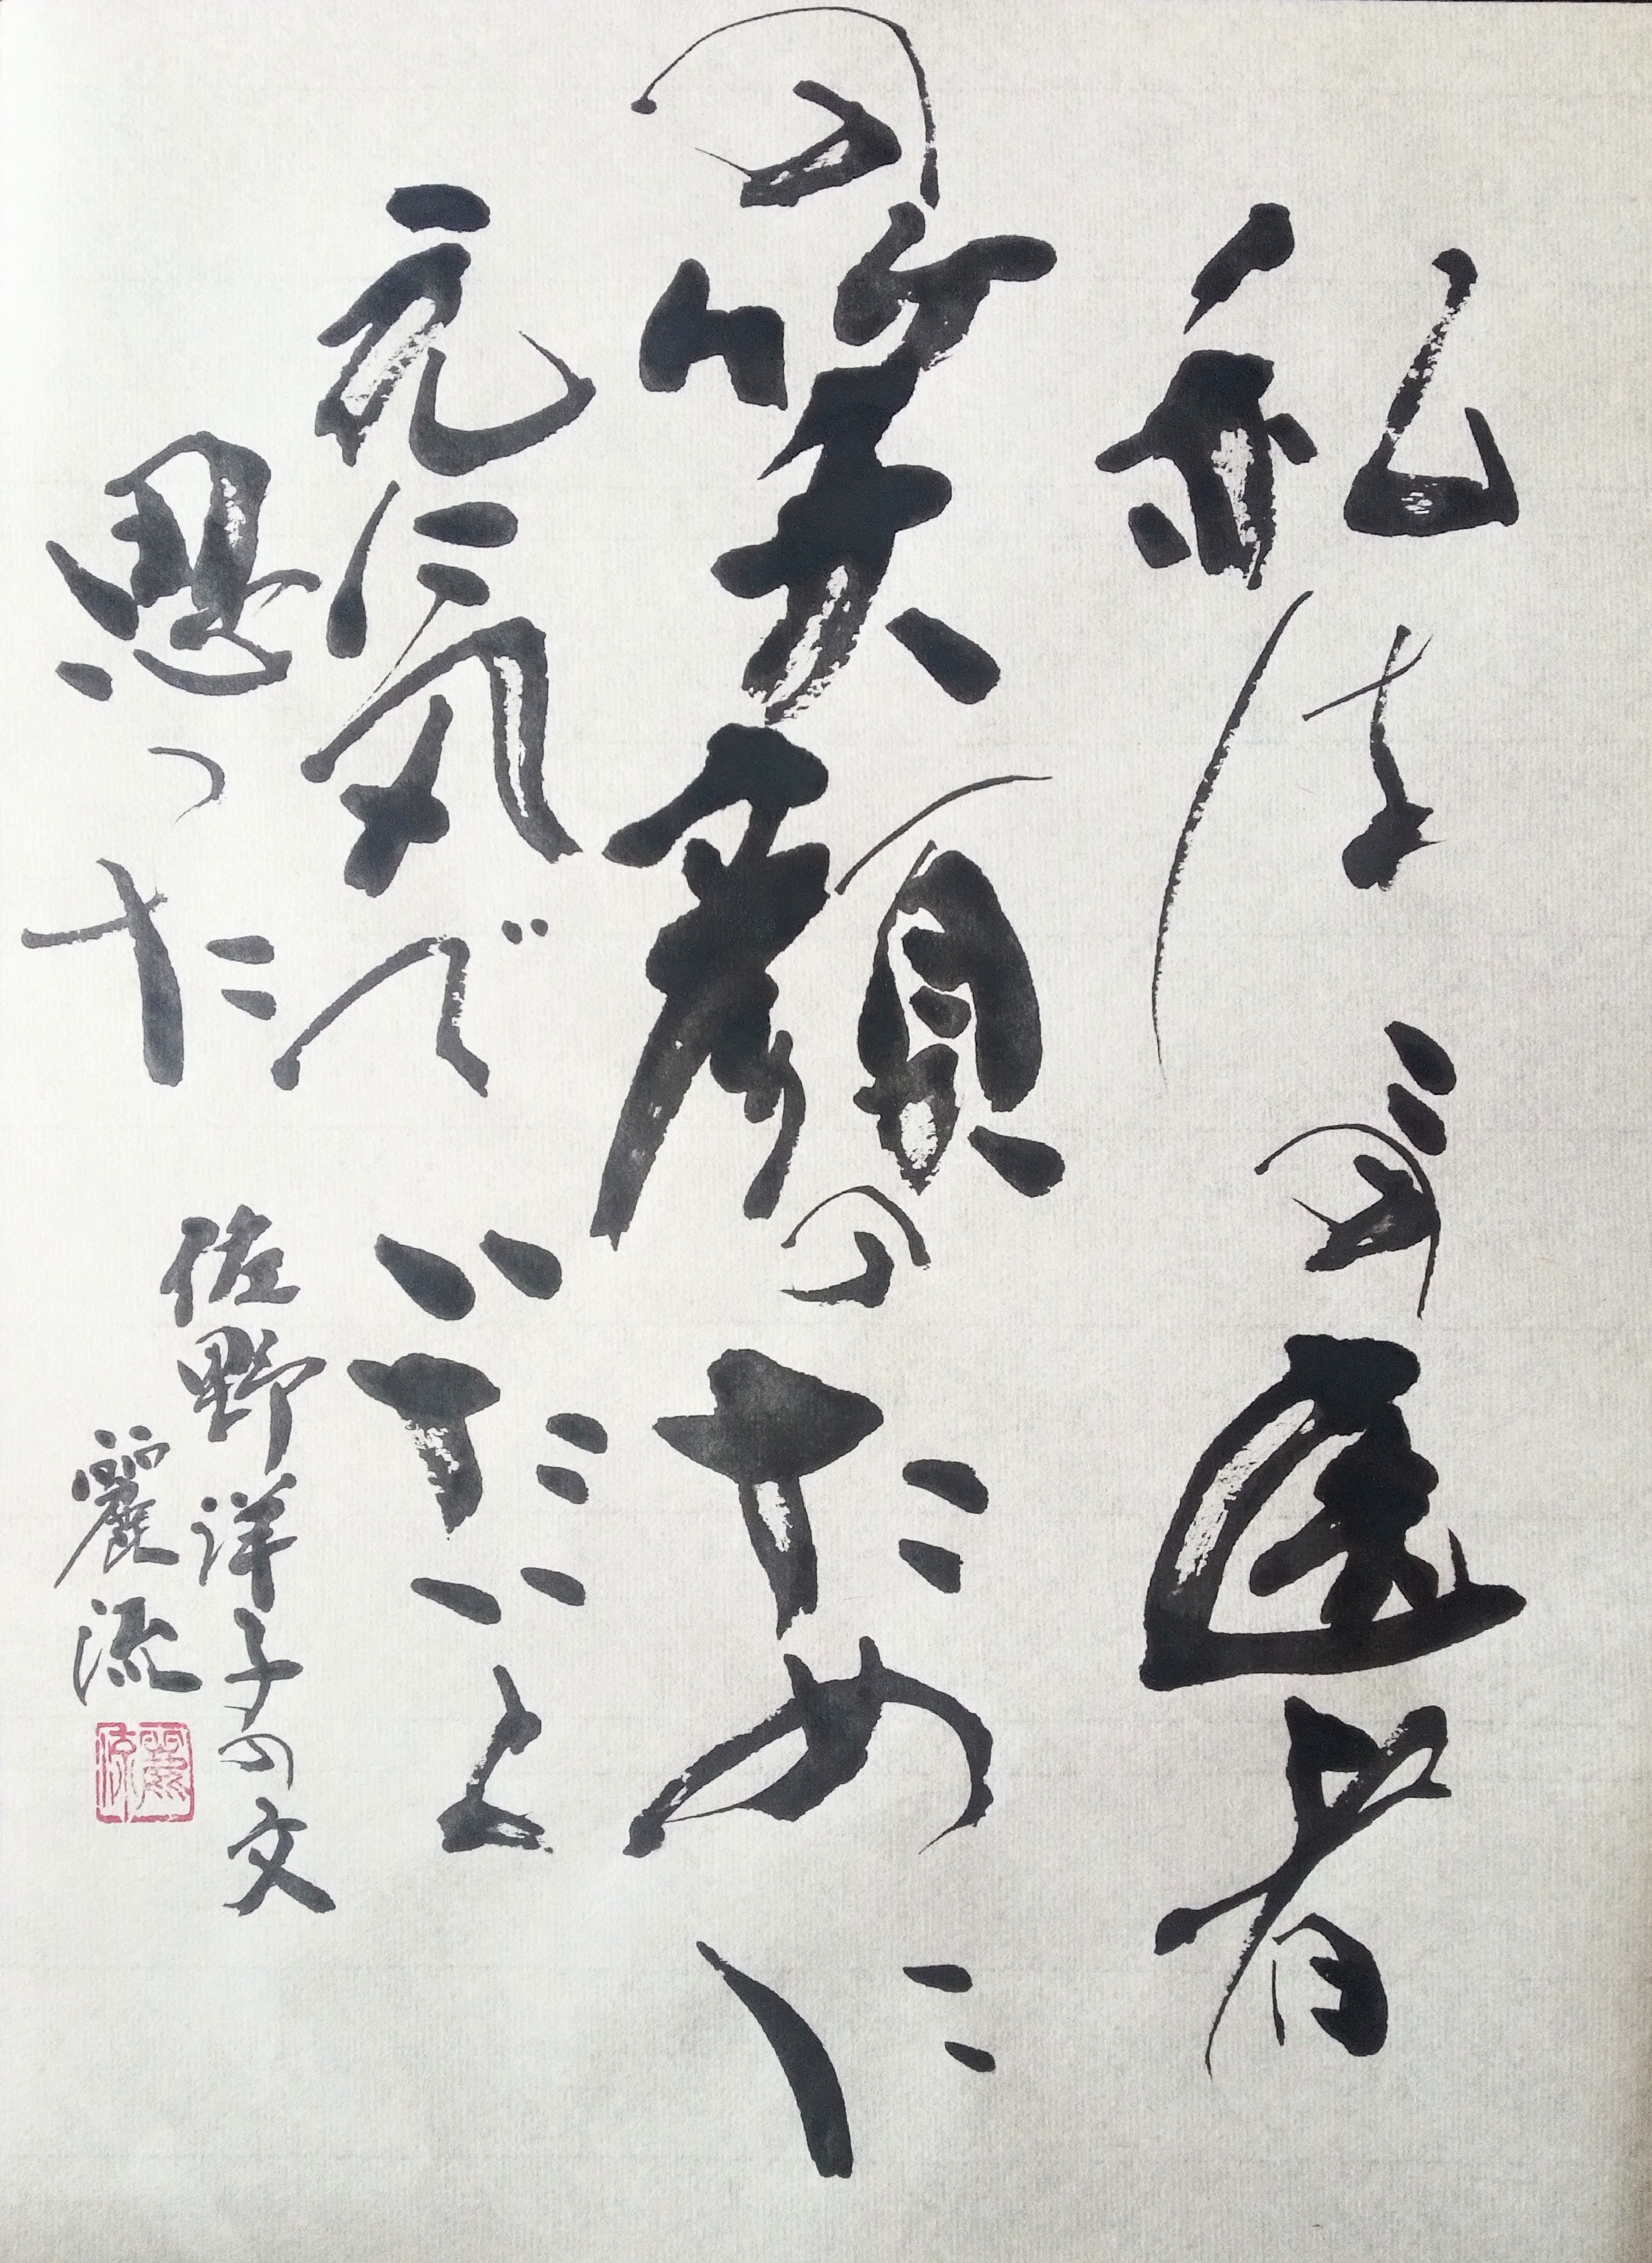 私はこの医者
の笑顔のために
元気でいたいと
思った
佐野洋子の文
麗流